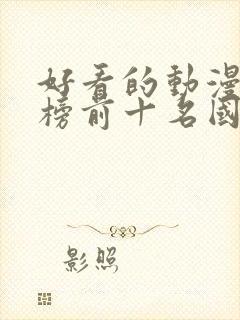 好看的動漫
榜前十名國
影照